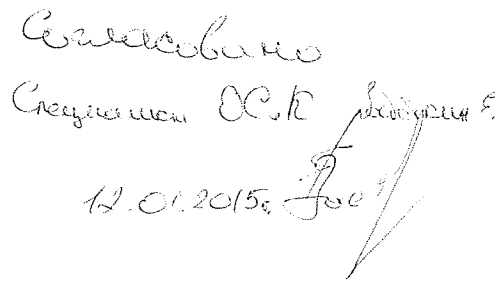 Согласовано
Специалист ОСиК
12.01.2015г.